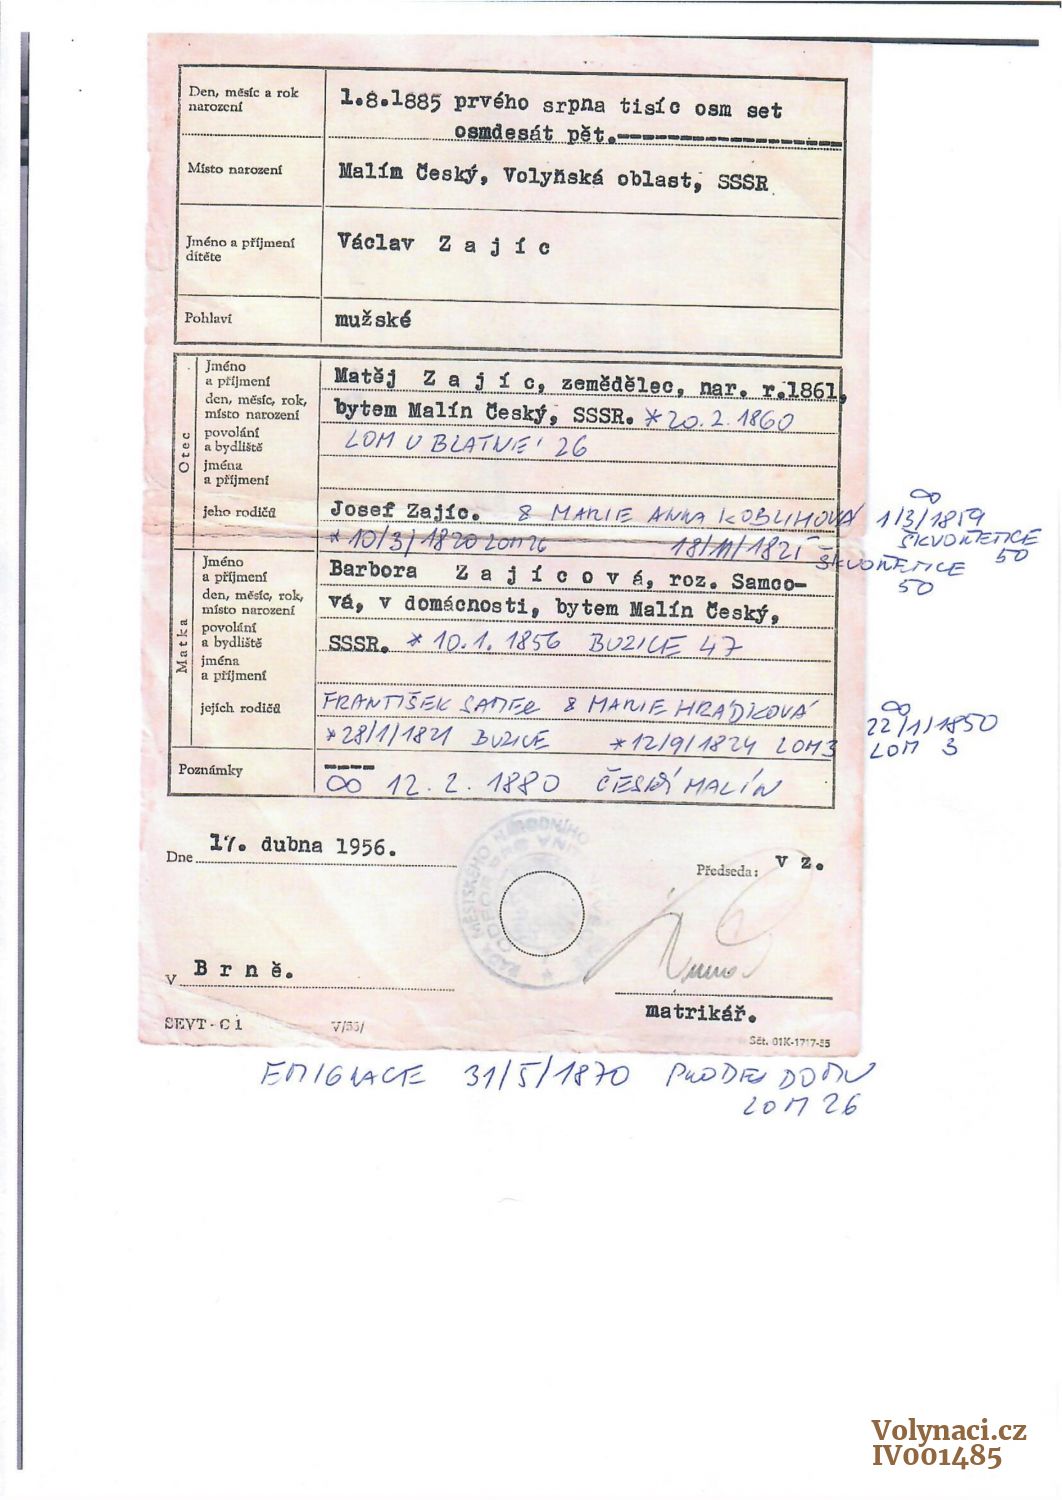 Den, měsíc a rok
narození
1.8.1885 prvého srpna tisíc osm set
osmdesát pět.
Místo narození
Malín Český, Volyňská oblast, SSSR
Jméno a příjmení
dítěte
Václav Zajíc
Pohlaví
mužské
Otec
Jméno
a příjmení
den, měsíc, rok,
místo narození
povolání
a bydliště
jména
a příjmení
jeho rodičů
Matěj Zajíc, zemědělec, nar. r.1861,
bytem Malín Český, SSSR. *20.2.1860
LOM U BLATNÉ 26
Josef Zajíc. & MARIE ANNA KOBLIHOVÁ
*10/3/1820 LOM 26 18/11/1821 ŠKVOŘETICE
50
∞
1/3/1859
ŠKVOŘETICE
50
Matka
Jméno
a příjmení
den, měsíc, rok,
místo narození
povolání
a bydliště
jména
a příjmení
jejích rodičů
Barbora Zajícová, roz. Samco-
vá, v domácnosti, bytem Malín Český,
SSSR. *10.1.1856 BUZICE 47
FRANTIŠEK SAMEC & MARIE HRÁDKOVÁ
*28/1/1821 BUZICE *12/9/1824 LOM 3
∞
22/1/1850
LOM 3
Poznámky
∞ 12.2.1880 ČESKÝ MALÍN
Dne 17. dubna 1956.
Předseda: v z.
V Brně.
matrikář.
SEVT - C 1 V/55/
Sčt. 01K-1717-55
EMIGRACE 31/5/1870 PRODEJ DOMU
LOM 26
Volynaci.cz
IV001485